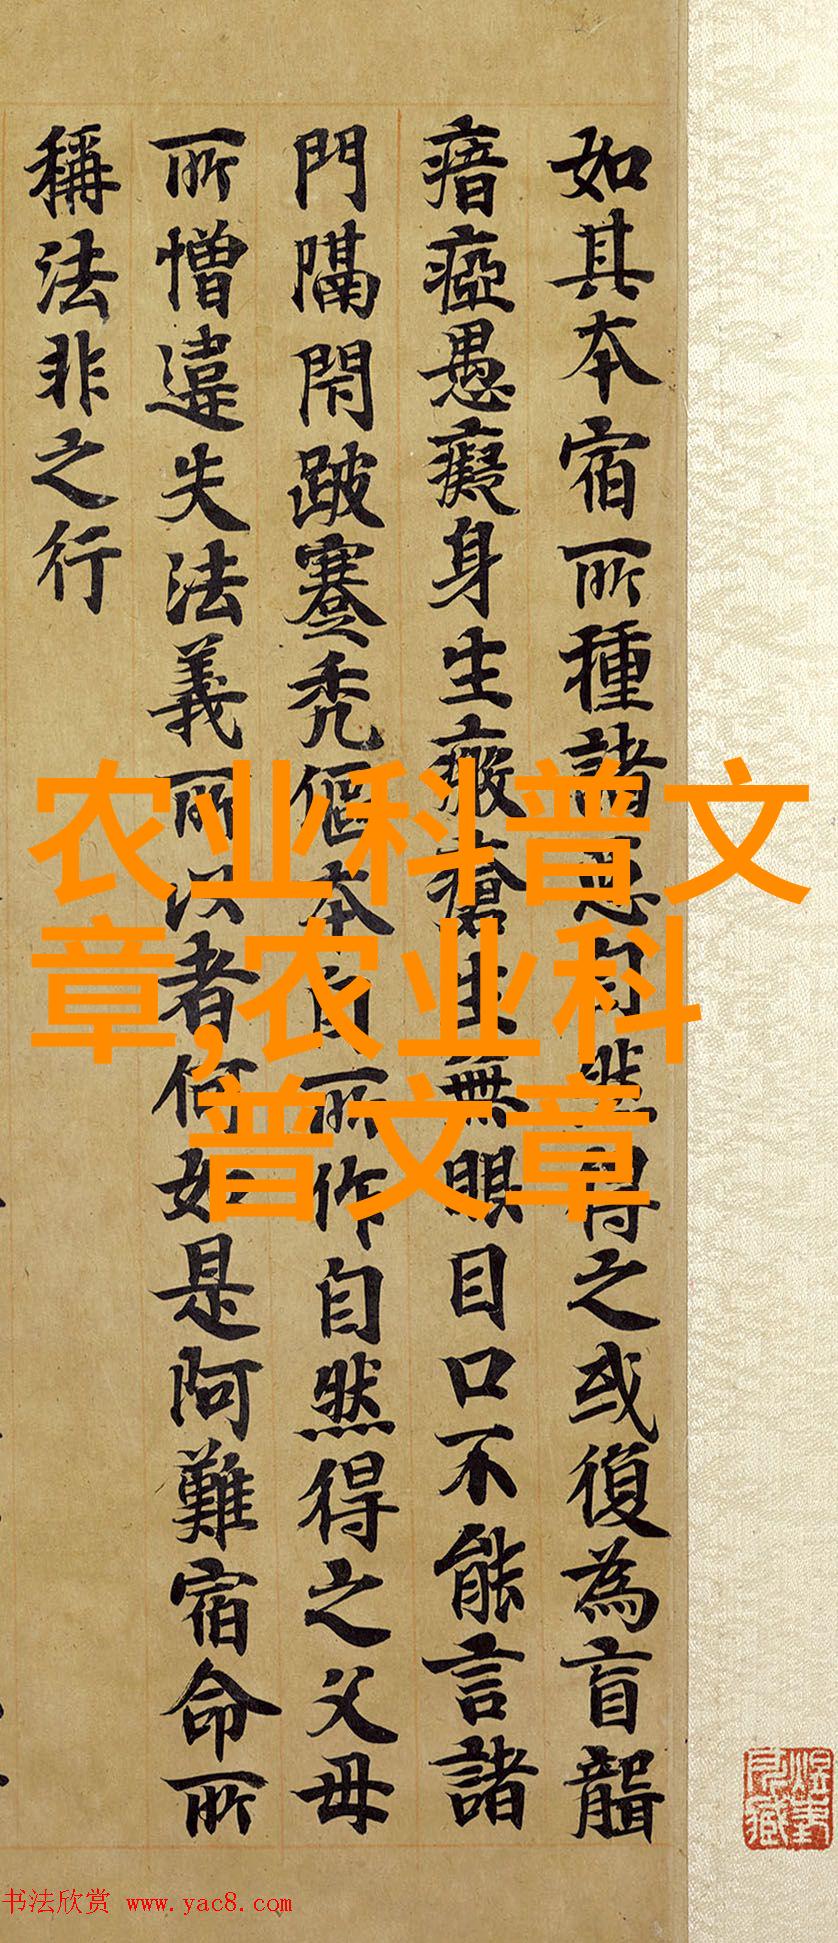 如其本宿所種諸惡自然得之或復為盲聾
瘖瘂愚癡身生癥瘡生無眼目口不能言諸
門隔閇跛蹇禿傴本自所作自然得之父母
所憎違失法義所以者何如是阿難宿命所
稱法非之行
农业科普文
章,农业科
普文章
书法欣赏 www.yac8.com